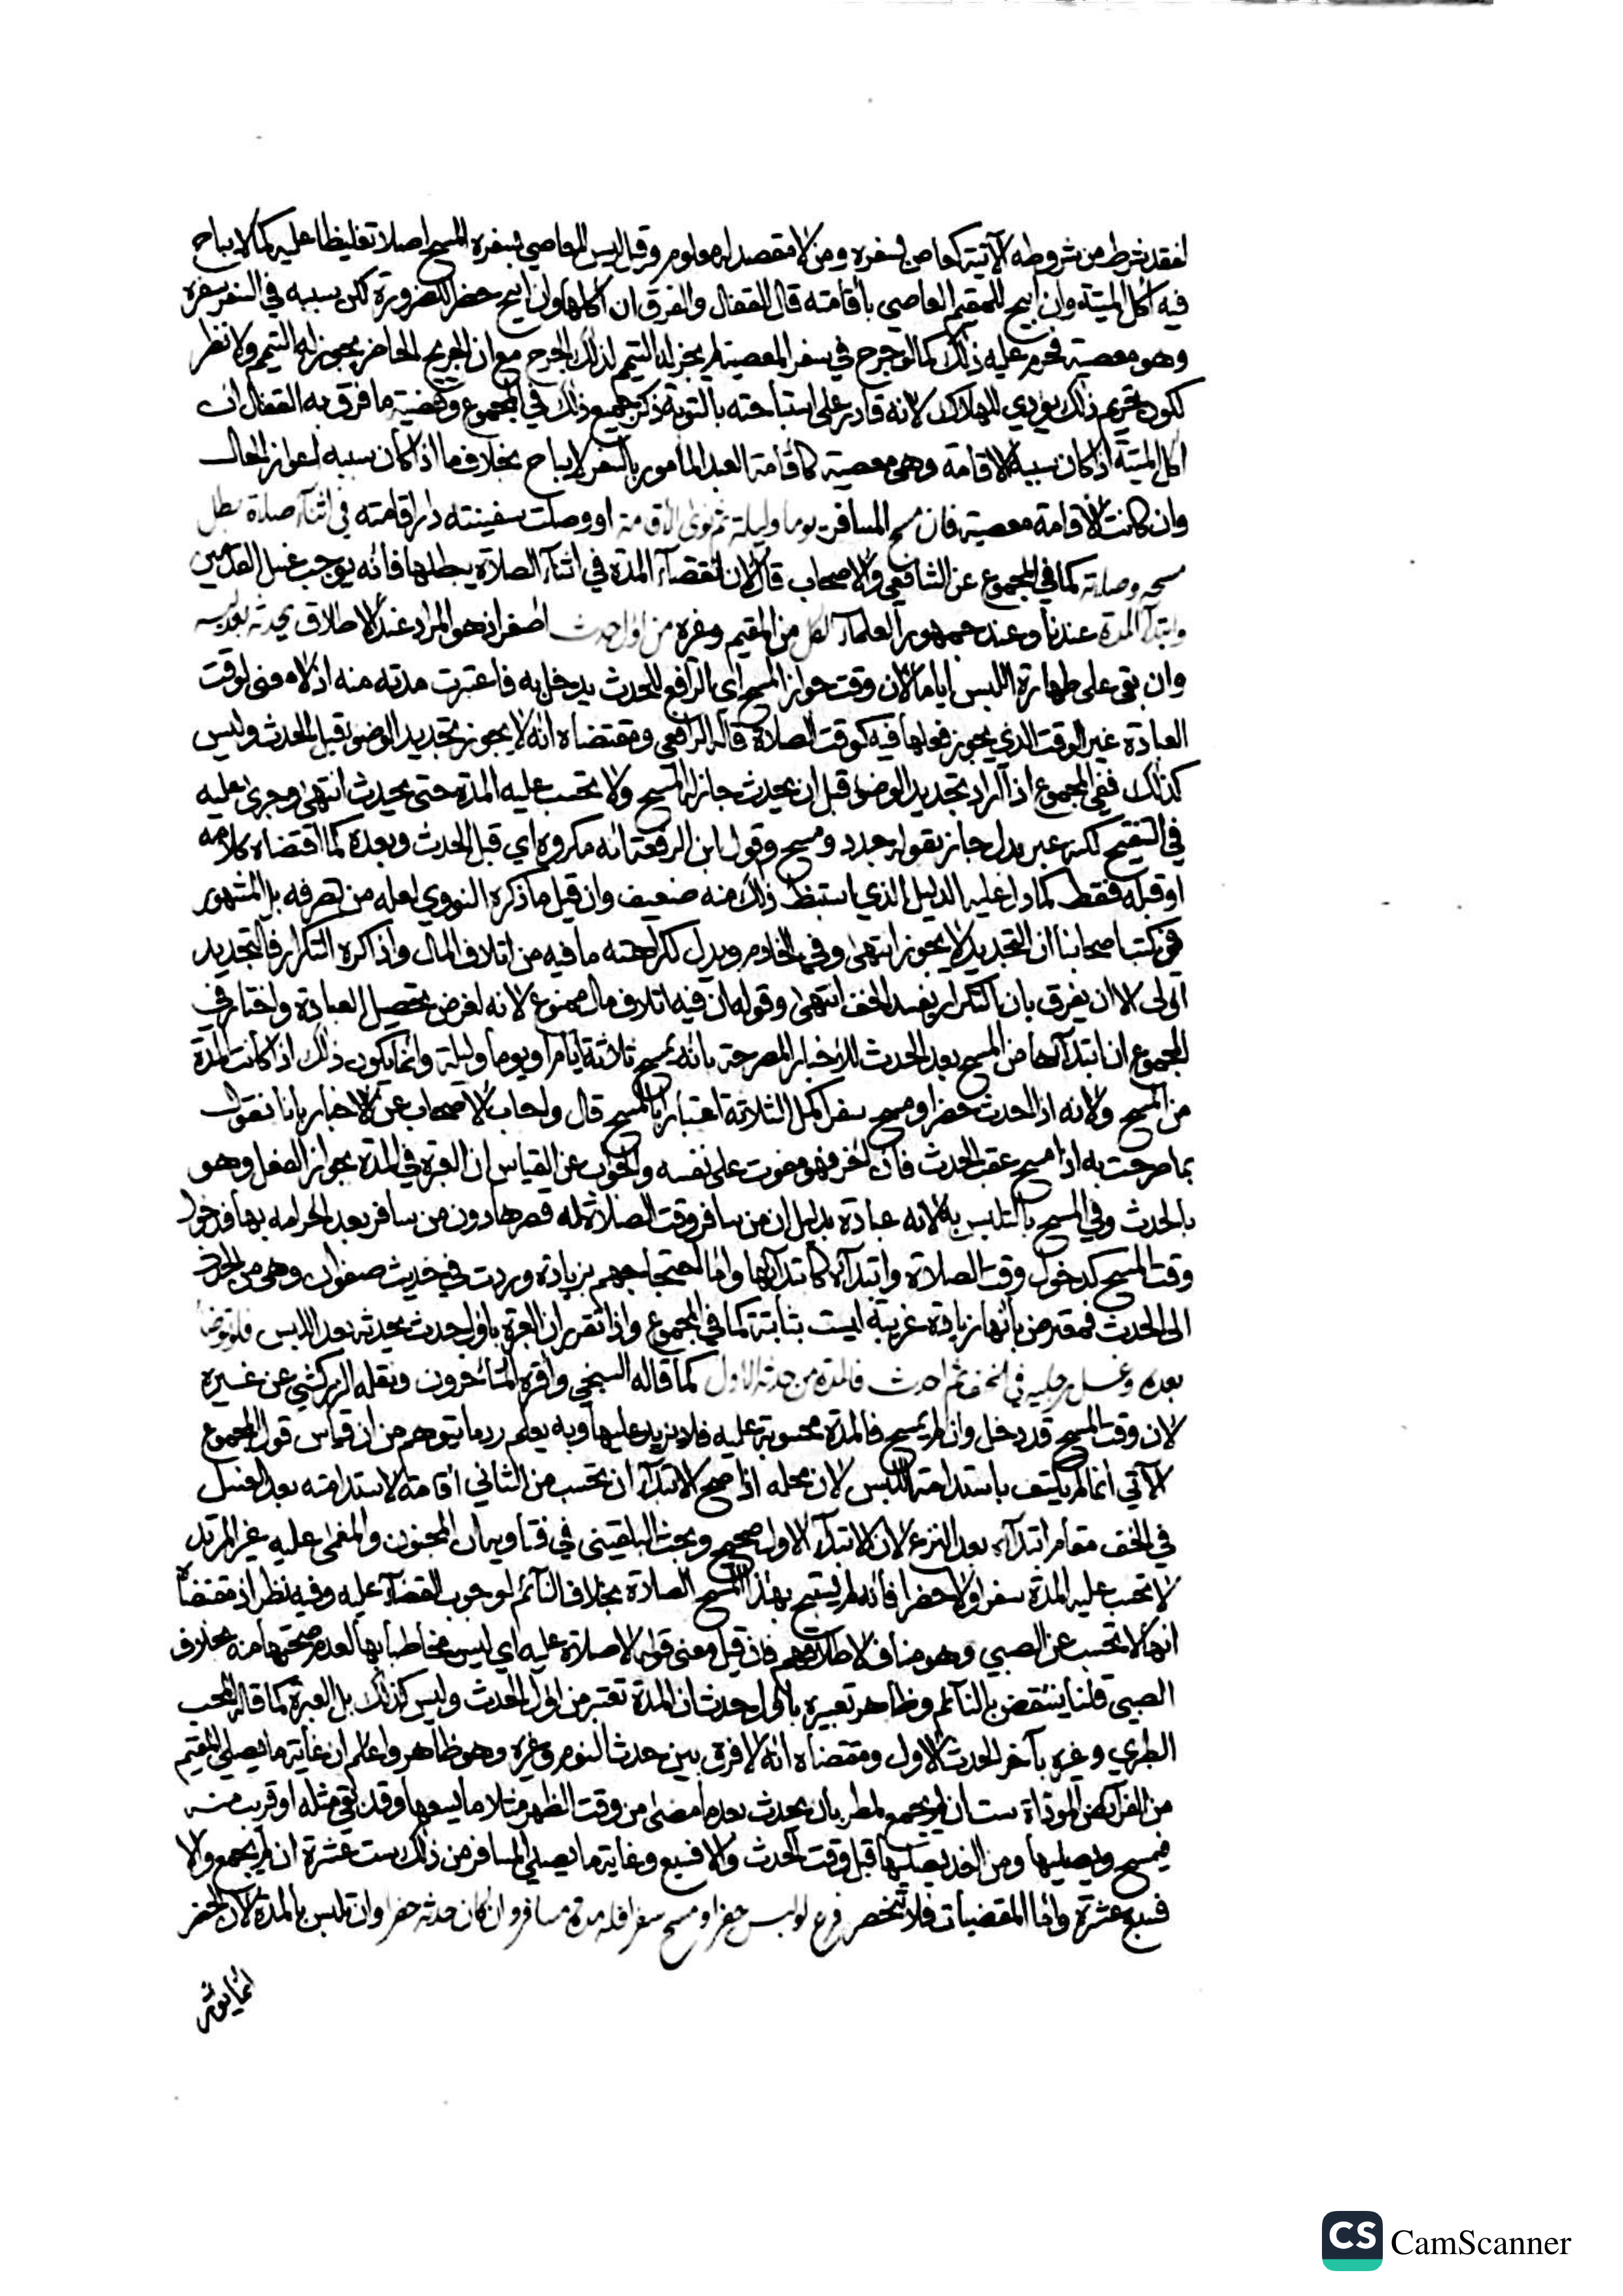 لفقد شرط من شروطه الآتية كعاص بسفره ومن لا مقصد له معلوم وقيل ليس للعاصي بسفره المسح اصلا تغليظا عليه كما لا يباح
فيه اكل الميتة وان ابيح للمقيم العاصي باقامته قال القفال والفرق ان اكلها وان ابيح حضرا للضرورة لكن سببه في السفر سفره
وهو معصية فحرم عليه ذلك كما لو جرح في سفر المعصية لم يجز له التيمم لذلك الجرح مع ان الجريح الحاضر يجوز له التيمم ولا نظر
لكون تحريم ذلك يؤدي للهلاك لانه قادر على استباحته بالتوبة ذكر جميع ذلك في المجموع وقضية ما فرق به القفال ان
اكل الميتة اذا كان سببه الاقامة وهي معصية كاقامة العبد المامور بالسفر لا يباح بخلاف ما اذا كان سببه اعواز الحال
وان كانت الاقامة معصية فان مسح المسافر يوما وليلة ثم نوى الاقامة او وصلت سفينته دار اقامته في اثناء صلاة بطل
مسحه وصلاته كما في المجموع عن الشافعي والاصحاب قال لان انقضآء المدة في اثنآء الصلاة يبطلها فانه يوجب غسل القدمين
وابتدآء المدة عندنا وعند جمهور العلمآء لكل من المقيم وغيره من اول حدث اصغر اذ هو المراد عند الاطلاق يحدثه بعد لبسه
وان بقي على طهارة اللبس اياما لان وقت جواز المسح اي الرافع للحدث يدخل به فاعتبرت مدته منه اذ لا معنى لوقت
العبادة غير الوقت الذي يجوز فعلها فيه كوقت الصلاة قاله الرافعي ومقتضاه انه لا يجوز تجديد الوضو قبل الحدث وليس
كذلك ففي المجموع اذا اراد تجديد الوضوا قبل ان يحدث جاز له المسح ولا تحسب عليه المدة حتى يحدث انتهى وجرى عليه
في التنقيح لكنه عبر بدل جاز بقوله جدد ومسح وقول ابن الرفعة انه مكروه اي قبل الحدث وبعده كما اقتضاه كلامه
او قبله فقط كما دل عليه الدليل الذي استنبط ذلك منه ضعيف وان قيل ما ذكره النووي لعله من تصرفه بل المشهور
في كتب اصحابنا ان التجديد لا يجوز انتهى وفي الخادم ويدل لكراهته ما فيه من اتلاف المال واذا كره التكرار فالتجديد
اولى الا ان يفرق بان التكرار يفسد الخف انتهى وقوله ان فيه اتلاف مال ممنوع لانه لغرض تحصيل العبادة واختار في
المجموع ان ابتدآها من المسح بعد الحدث للاخبار المصرحة بانه يمسح ثلاثة ايام او يوما وليلة وانما يكون ذلك اذا كانت المدة
من المسح ولانه اذا احدث حضرا ومسح سفرا كمل الثلاثة اعتبارا بالمسح قال واجاب الاصحاب عن الاخبار بانا نقول
بما صرحت به اذا مسح عقب الحدث فان اخر فهو مفوت على نفسه والجواب عن القياس ان العبرة في المدة بجواز الفعل وهو
بالحدث وفي المسح بالتلبس به لانه عبادة بدليل ان من سافر وقت الصلاة له قصرها دون من سافر بعد احرامه بها فدخول
وقت المسح كدخول وقت الصلاة وابتدآه كابتدآئها واما احتجاجهم بزيادة وردت في حديث صفوان وهي من الحدث
الى الحدث فمعترض بانها زيادة غريبة ليست بثابتة كما في المجموع واذا تقرر ان العبرة باول حدث يحدثه بعد اللبس فلو توضا
بعده وغسل رجليه في الخف ثم احدث فالمدة من حدثه الاول كما قاله السبخي واقره المتاخرون ونقله الزركشي عن غيره
لان وقت المسح قد دخل وان لم يمسح فالمدة محسوبة عليه فلا يزيد عليها وبه يعلم رد ما يتوهم من ان قياس قول المجموع
الآتي انما لم يكتف باستدامة اللبس لان محله اذا صح الابتدآء ان تحسب من الثاني اقامة لاستدامته بعد الغسل
في الخف مقام ابتدآئه بعد النزع لان الابتدآء الاول صحيح وبحث البلقيني في فتاويه ان المجنون والمغمى عليه غير المرتد
لا تحسب عليه المدة سفرا ولا حضرا فانه لم يستبح بهذا المسح الصلاة بخلاف النآئم لوجوب القضآء عليه وفيه نظر اذ مقتضاه
انها لا تحسب عن الصبي وهو مناف لاطلاقهم فان قيل معنى قوله لا صلاة عليه اي ليس مخاطبا بها لعدم صحتها منه بخلاف
الصبي قلنا ينتقض بالنآئم وظاهر تعبيره باول حدث ان المدة تعتبر من اول الحدث وليس كذلك بل العبرة كما قال المحب
الطبري وغيره بآخر الحدث الاول ومقتضاه انه لا فرق بين حدث النوم وغيره وهو ظاهر واعلم ان غاية ما يصلي المقيم
من الفرآئض المؤداة ست ان لم يجمع لمطر بان يحدث بعد ما مضى من وقت الظهر مثلا ما يسعها وقد بقي مثله او قريب منه
فيمسح ويصليها ومن الغد يصليها قبل وقت الحدث والا فسبع وغاية ما يصلي المسافر من ذلك ست عشرة ان لم يجمع والا
فسبع عشرة واما المقضيات فلا تنحصر فرع لو لبس حضرا ومسح سفرا فله مدة مسافر وان كان حدثه حضرا وان تلبس بالمدة لان الحضر
انما يؤثر
CS CamScanner